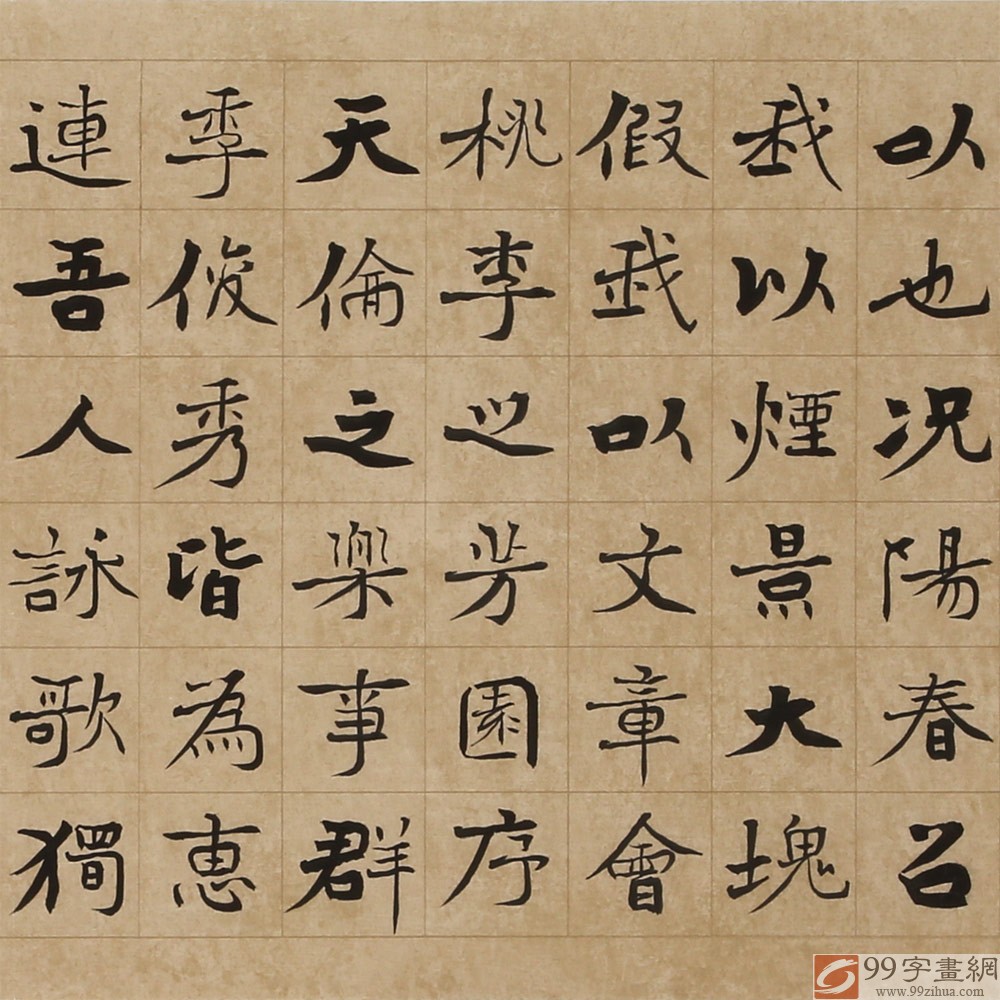 以也況陽春召
我以煙景大塊
假我以文章會
桃李之芳園序
天倫之樂事群
季俊秀皆為惠
連吾人詠歌獨
99字畫網
www.99zihua.com